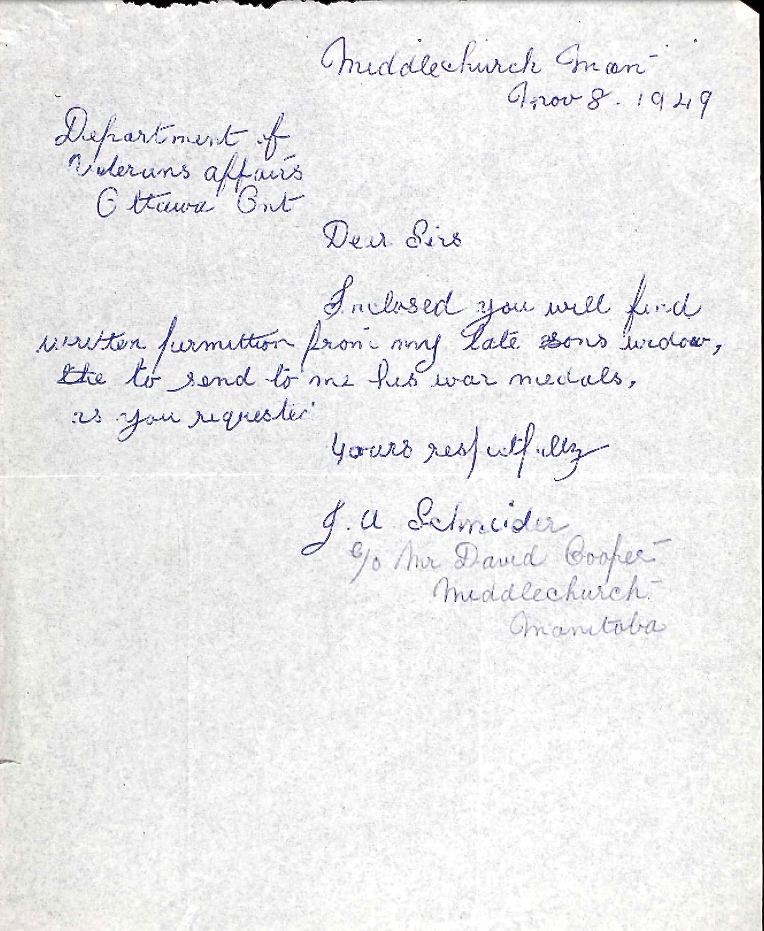 Middlechurch Man
Nov 8. 1949
Department of
Veterans affairs
Ottawa Ont
Dear Sirs
Inclosed you will find
written permittion from my late sons widow,
the to send to me his war medals,
as you requested
Yours respectfully
J. A Schneider
c/o Mr David Cooper
Middlechurch
Manitoba